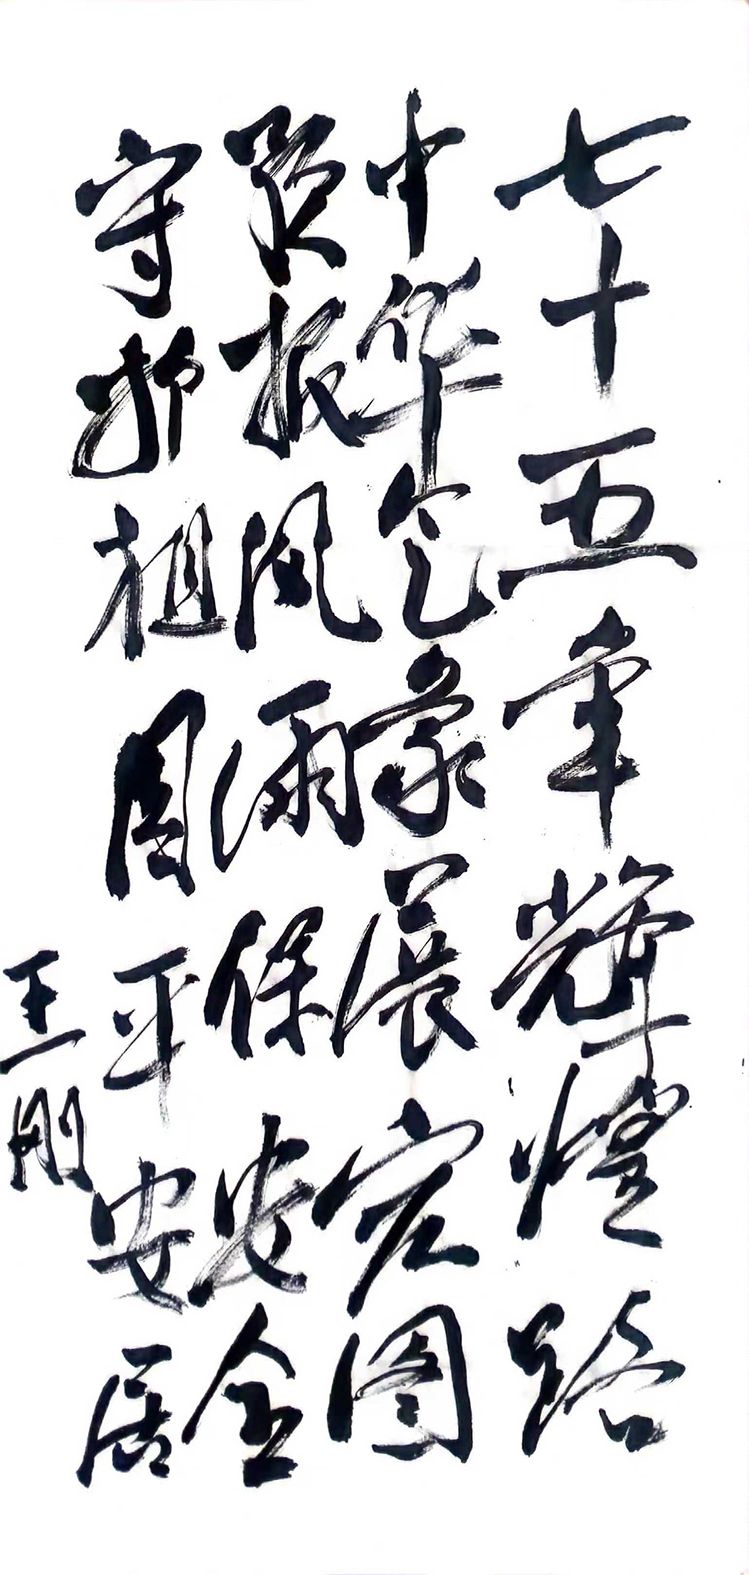 七十五年辉煌路
中华气象展宏图
预报风雨保安全
守护祖国平安居
王刚